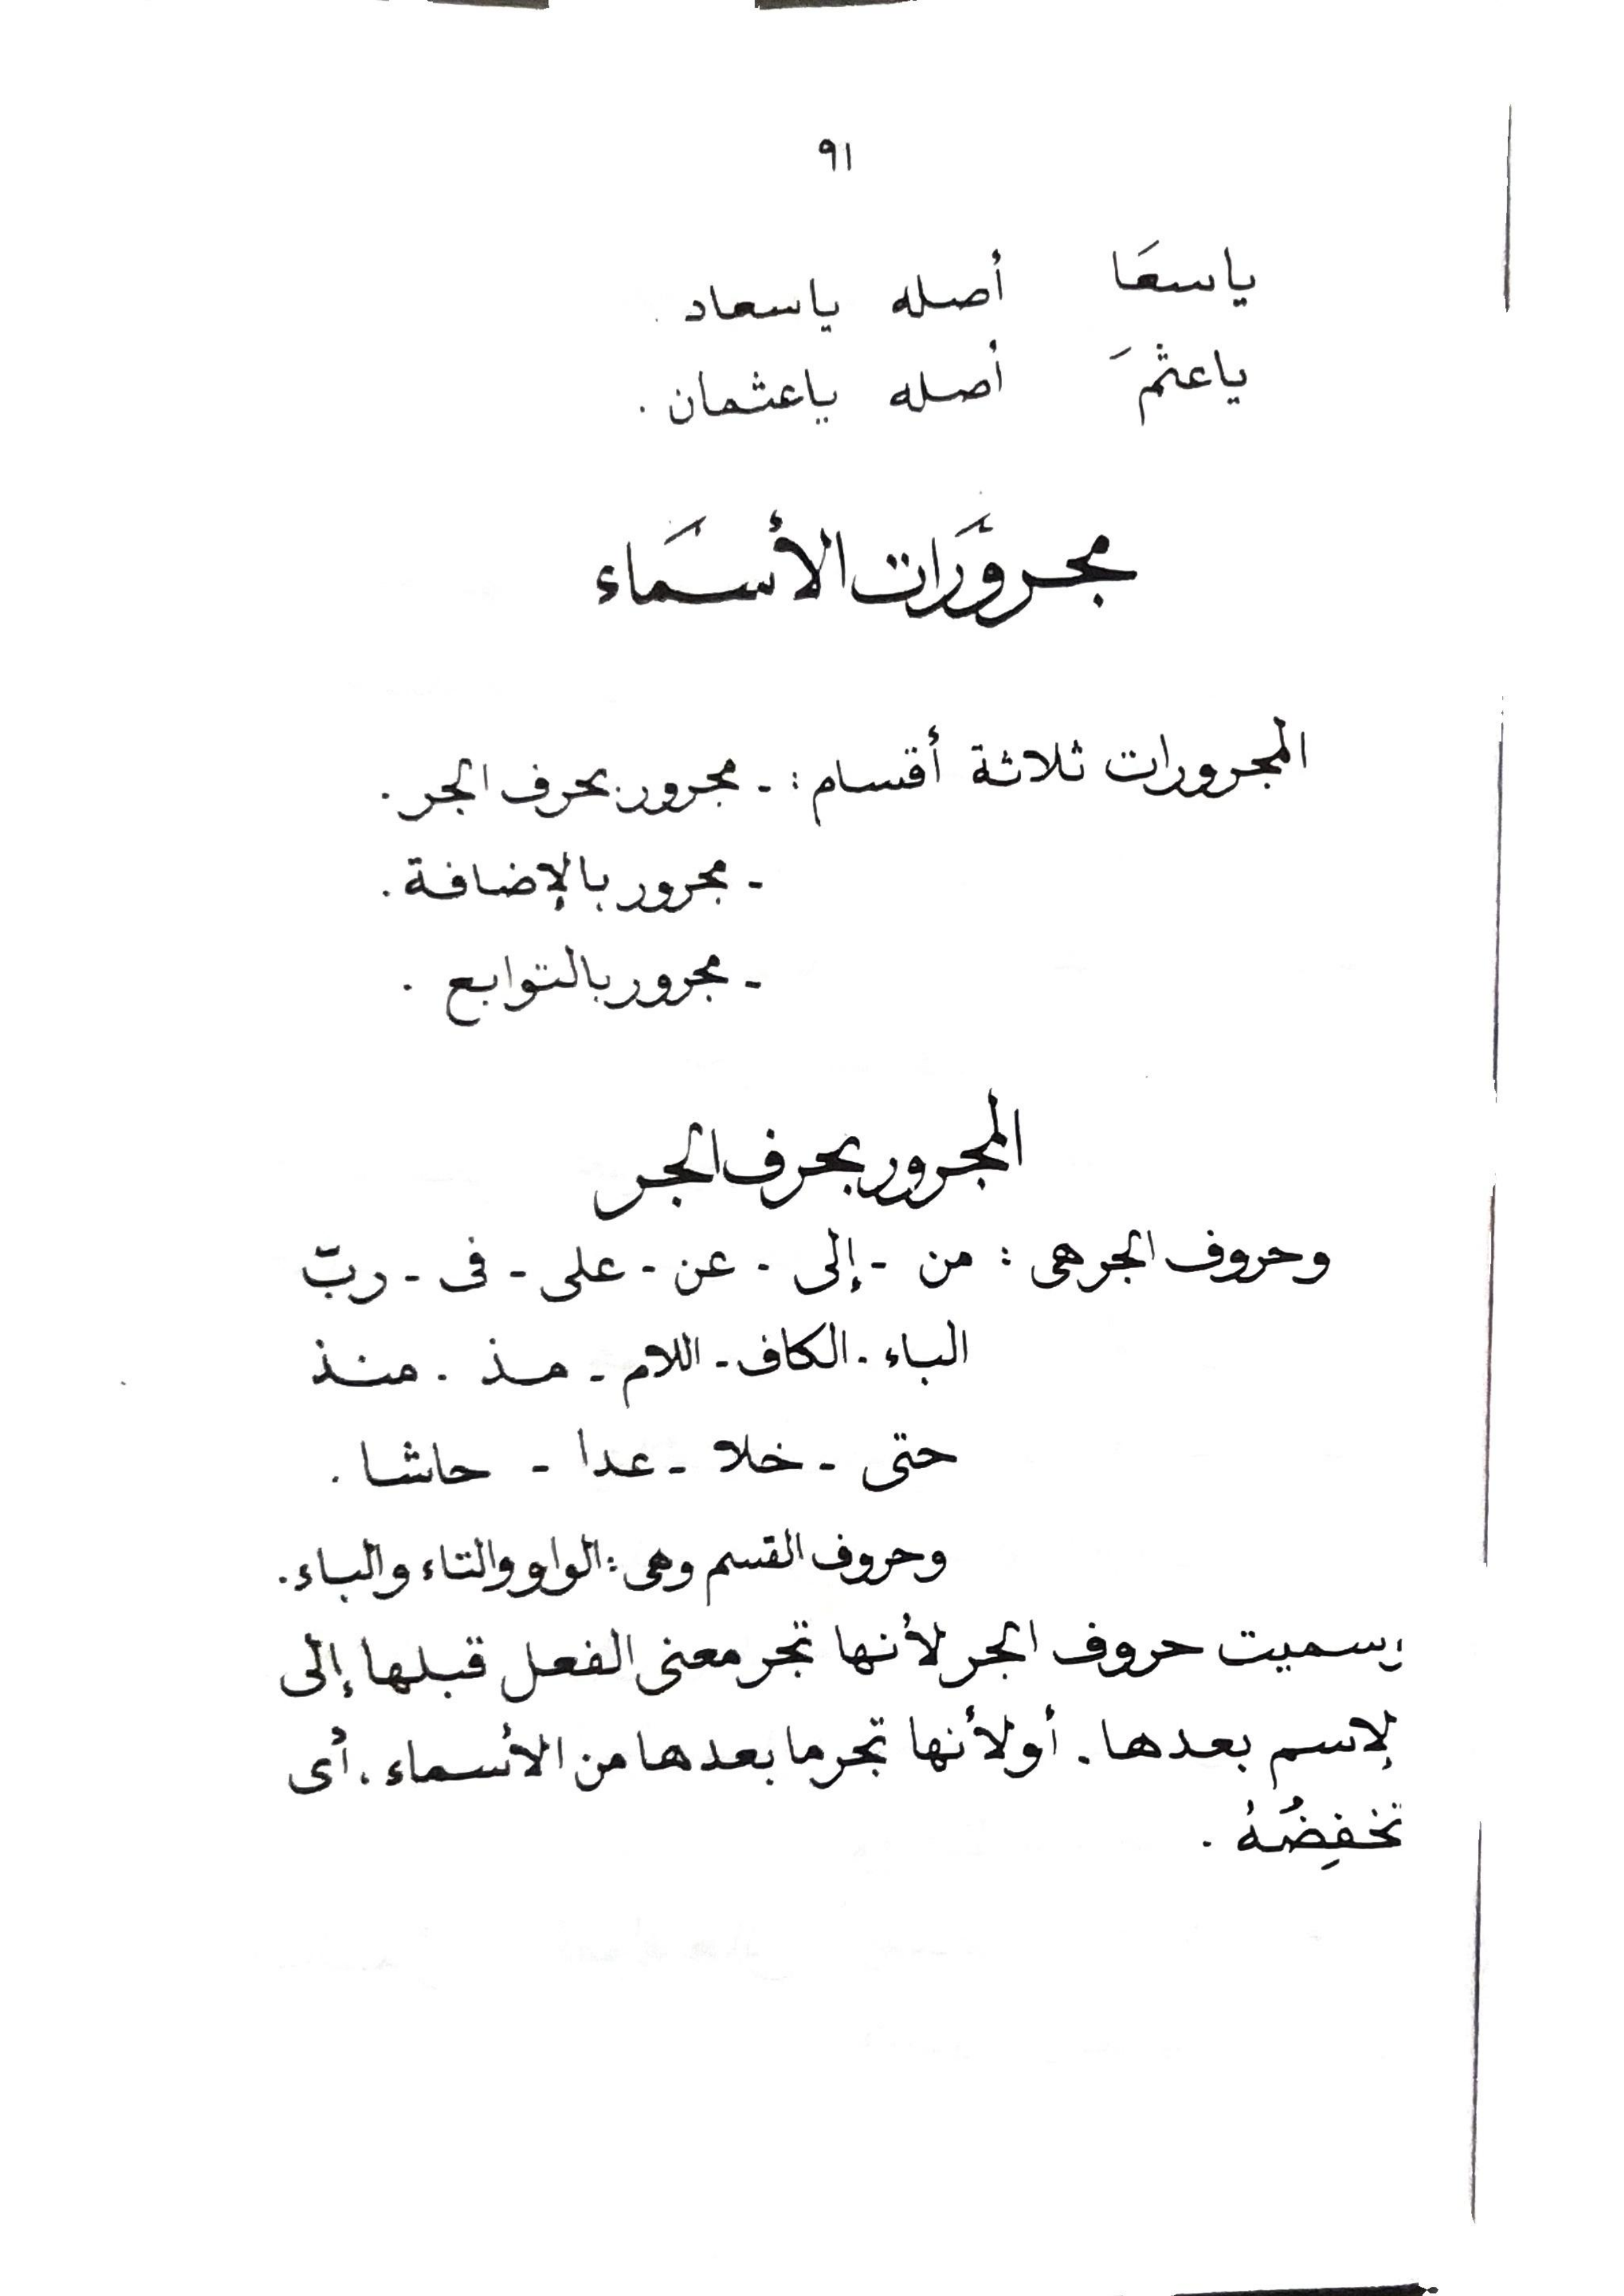 ٩١
ياسعَا أصله ياسعاد .
ياعثمَ أصله ياعثمان .
مجرورَات الأسمَاء
المجرورات ثلاثة أقسام : - مجرور بحرف الجر .
- مجرور بالإضافة .
- مجرور بالتوابع .
المجرور بحرف الجر
وحروف الجر هى : من - إلى - عن - على - فى - ربّ
الباء - الكاف - اللام - مذ - منذ
حتى - خلا - عدا - حاشا .
وحروف القسم وهى : الواو والتاء والباء .
وسميت حروف الجر لأنها تجر معنى الفعل قبلها إلى
لإسم بعدها . أو لأنها تجر ما بعدها من الأسماء ، أى
تخفِضُهُ .